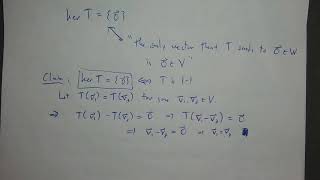 ker T = {0⃗}
"the only vector that T sends to 0⃗ ∈ W
is 0⃗ ∈ V"
Claim: ker T = {0⃗} ⟺ T is 1-1
Let T(v⃗₁) = T(v⃗₂) for some v⃗₁, v⃗₂ ∈ V.
⇒ T(v⃗₁) - T(v⃗₂) = 0⃗ ⇒ T(v⃗₁-v⃗₂) = 0⃗
⇒ v⃗₁-v⃗₂ = 0⃗ ⇒ v⃗₁=v⃗₂